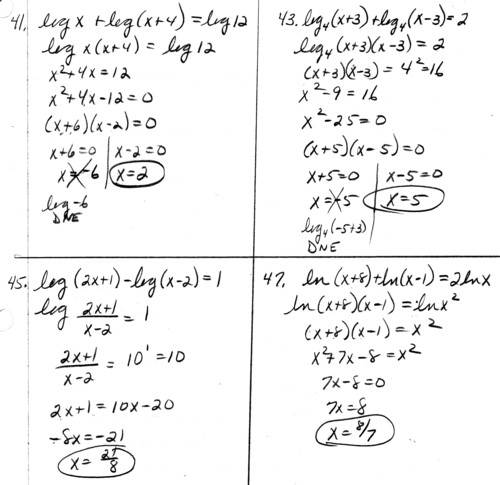 41. log x + log (x+4) = log 12
log x(x+4) = log 12
x²+4x = 12
x²+4x-12 = 0
(x+6)(x-2) = 0
x+6=0 | x-2=0
x=-6 | x=2
log -6
DNE
43. log₄(x+3)+log₄(x-3)=2
log₄(x+3)(x-3) = 2
(x+3)(x-3) = 4²=16
x²-9 = 16
x²-25=0
(x+5)(x-5)=0
x+5=0 | x-5=0
x=-5 | x=5
log₄(-5+3)
DNE
45. log (2x+1)-log(x-2)=1
log (2x+1)/(x-2) = 1
(2x+1)/(x-2) = 10¹ =10
2x+1 = 10x-20
-8x=-21
x = 21/8
47. ln (x+8)+ln(x-1)=2lnx
ln(x+8)(x-1) = lnx²
(x+8)(x-1) = x²
x²+7x-8 = x²
7x-8=0
7x=8
x=8/7